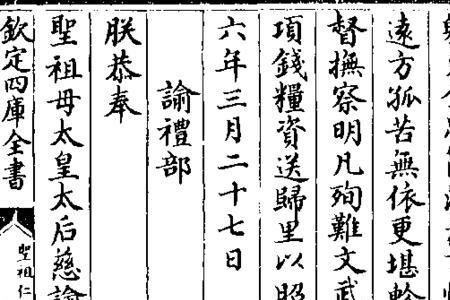 遠方孤苦無依更堪軫
督撫察明凡殉難文武
項錢糧資送歸里以昭
六年三月二十七日
諭禮部
朕恭奉
聖祖母太皇太后慈諭
欽定四庫全書
聖祖仁